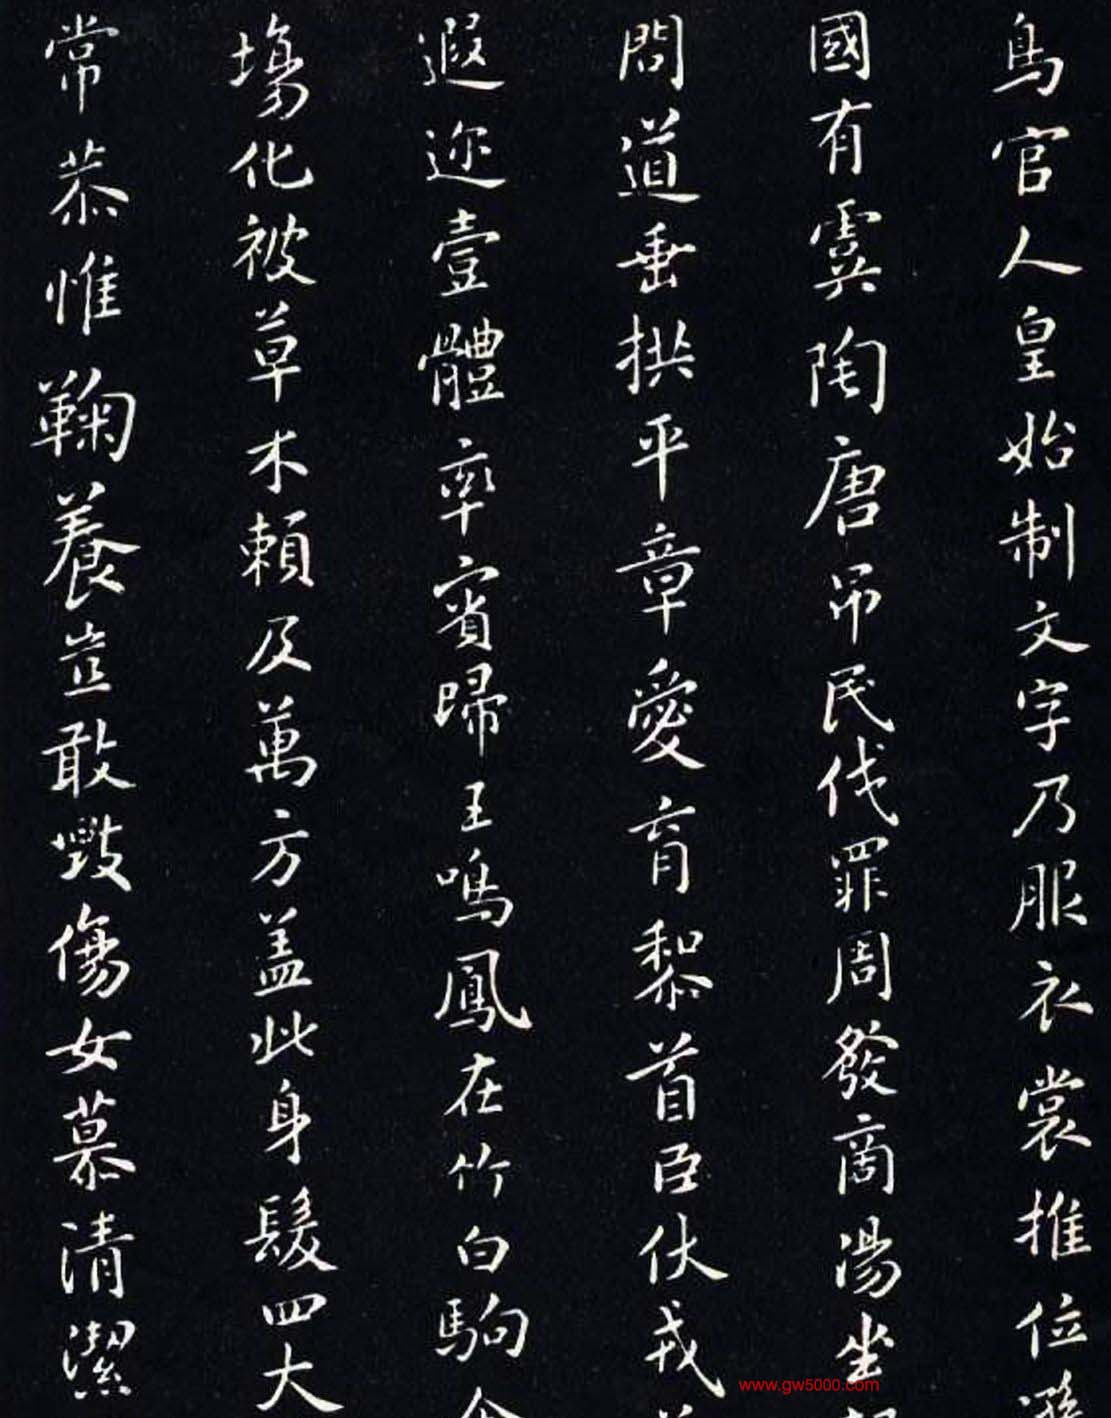 鳥官人皇始制文字乃服衣裳推位
國有虞陶唐吊民伐罪周發商湯坐
問道垂拱平章愛育黎首臣伏戎
遐迩壹體率賓歸王鳴鳳在竹白駒
塲化被草木賴及萬方盖此身髮四大
常恭惟鞠養豈敢毀傷女慕清潔
www.gw5000.com